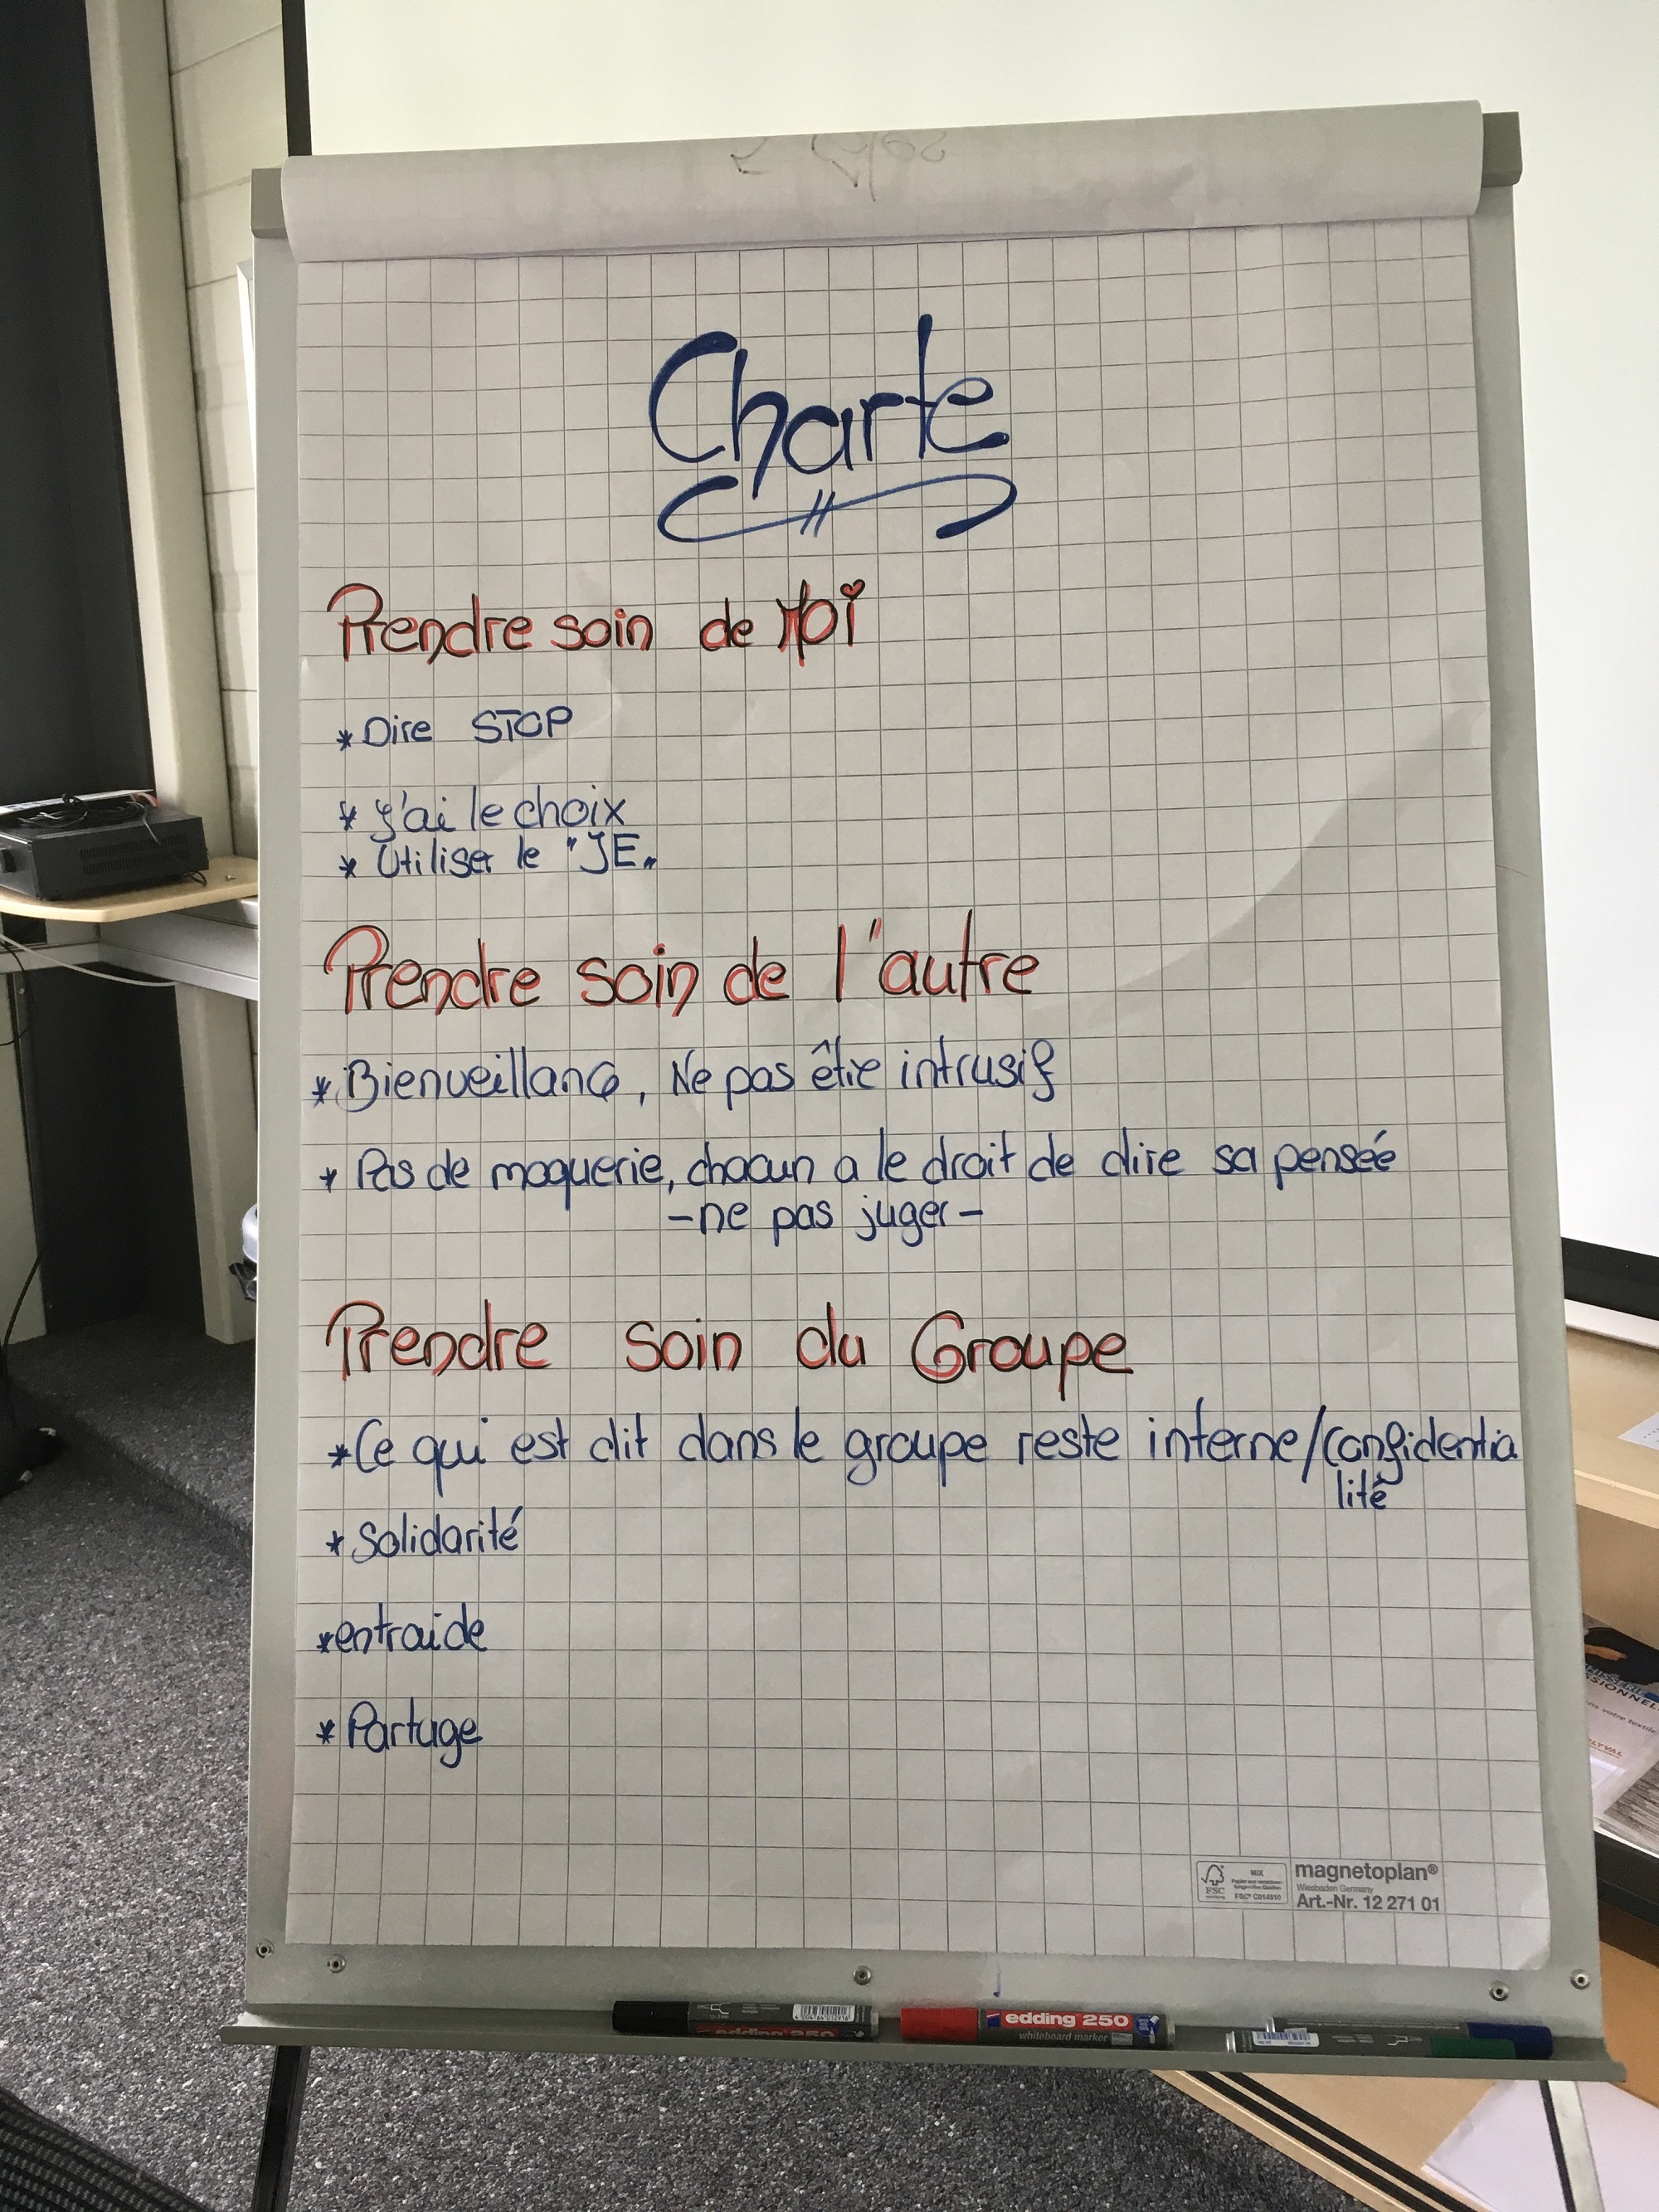 Charte
Prendre soin de Moi
* Dire STOP
* j'ai le choix
* Utiliser le "JE"
Prendre soin de l'autre
* Bienveillance, Ne pas être intrusif
* Pas de moquerie, chacun a le droit de dire sa pensée
- ne pas juger -
Prendre soin du Groupe
* Ce qui est dit dans le groupe reste interne/confidentia
lité
* Solidarité
* entraide
* Partage
magnetoplan®
Wiesbaden Germany
Art.-Nr. 12 271 01
FSC
MIX
FSC® C014510
edding 250
edding 250
whiteboard marker
SIONNEL
votre textile